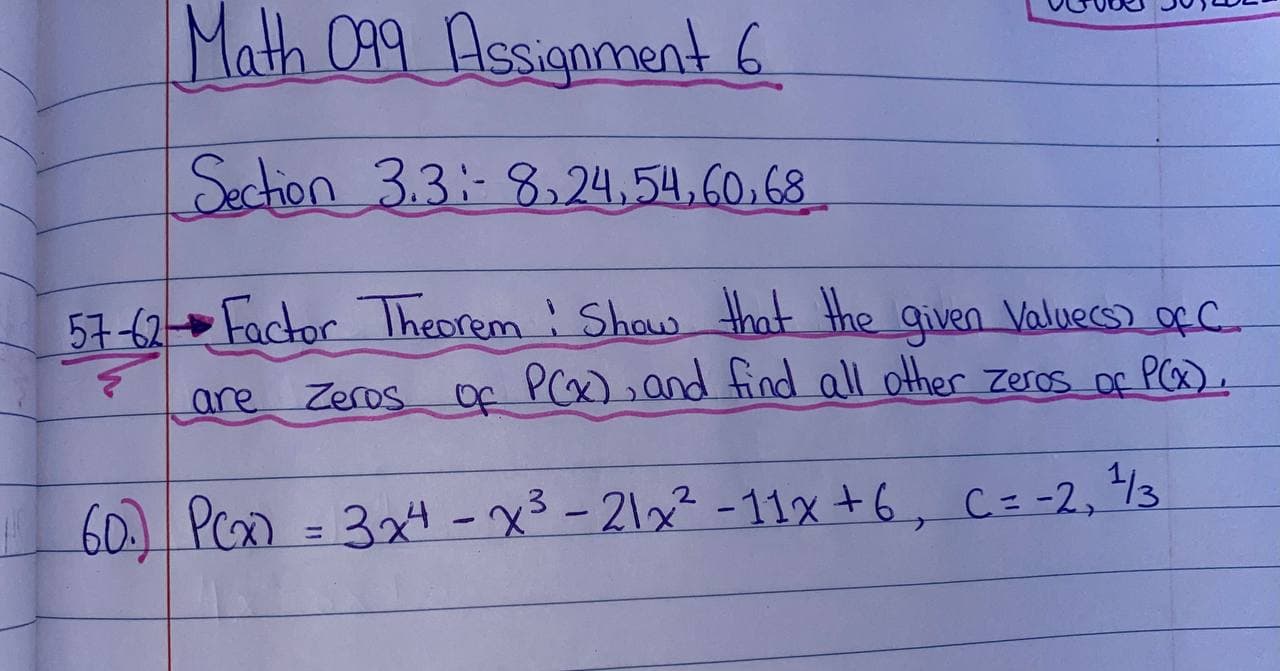 Math 099 Assignment 6
Section 3.3:- 8,24,54,60,68
57-62→ Factor Theorem : Show that the given Value(s) of C
are zeros of P(x), and find all other zeros of P(x).
60.) P(x) = 3x⁴ - x³ - 21x² - 11x + 6, C = -2, 1/3